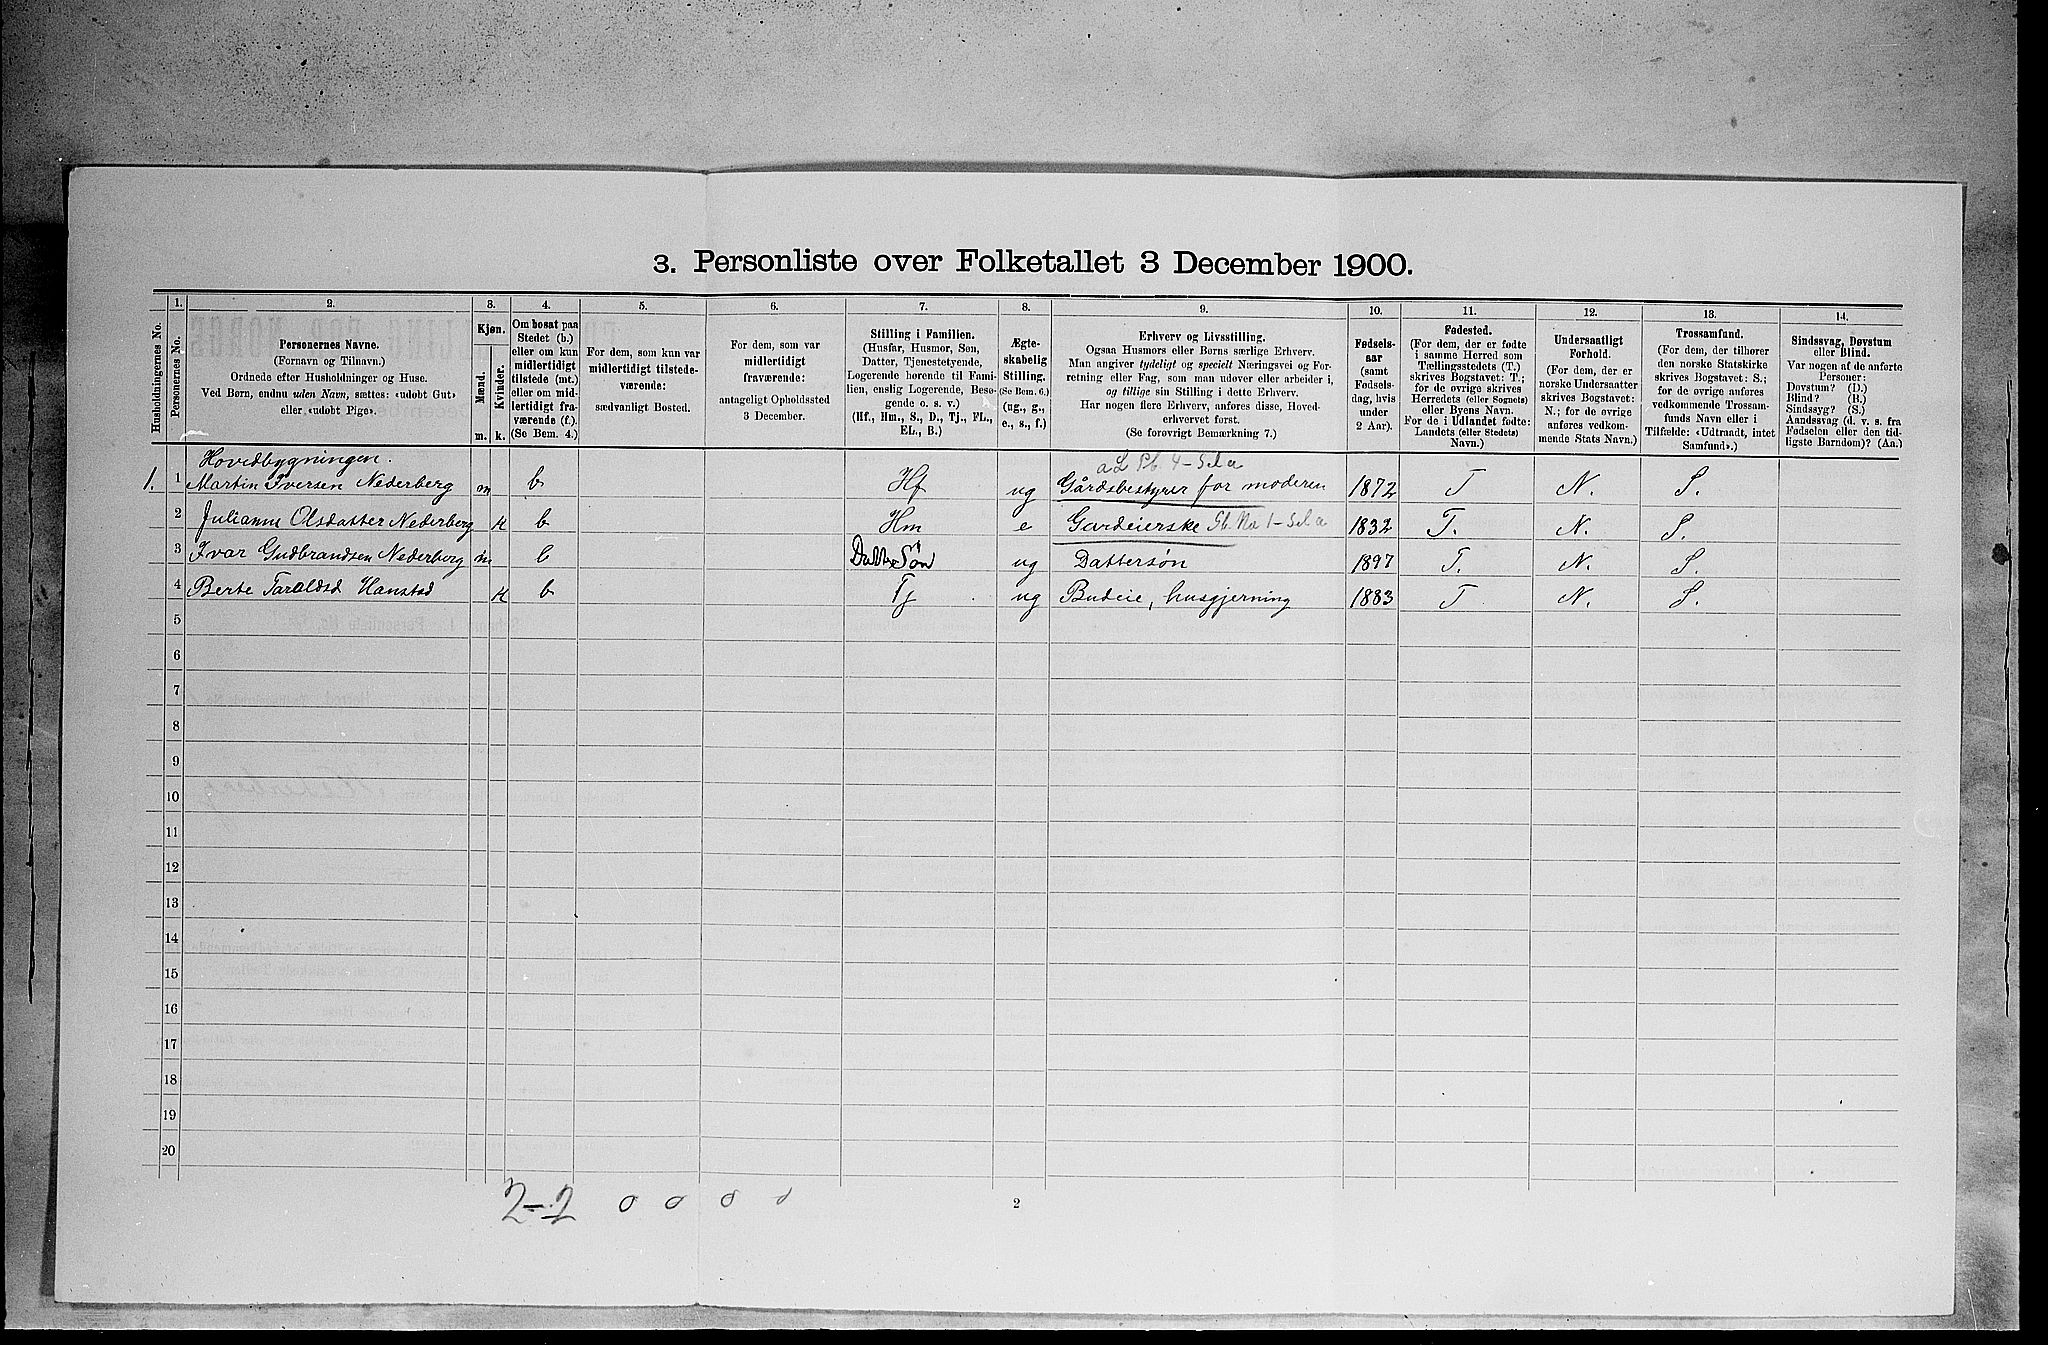 3. Personliste over Folketallet 3 December 1900.
Husholdningernes No.
1.
Personernes No.
2.
Personernes Navne.
(Fornavn og Tilnavn.)
Ordnede efter Husholdninger og Huse.
Ved Børn, endnu uden Navn, sættes: «udøbt Gut»
eller «udøbt Pige».
3.
Kjøn.
Mænd.
Kvinder.
m.
k.
4.
Om bosat paa
Stedet (b.)
eller om kun
midlertidigt
tilstede (mt.)
eller om mid-
lertidigt fra-
værende (f.).
(Se Bem. 4.)
5.
For dem, som kun var
midlertidigt tilstede-
værende:
sædvanligt Bosted.
6.
For dem, som var
midlertidigt
fraværende:
antageligt Opholdssted
3 December.
7.
Stilling i Familien.
(Husfar, Husmor, Søn,
Datter, Tjenestetyende,
Logerende hørende til Fami-
lien, enslig Logerende, Besø-
gende o. s. v.)
(Hf., Hm., S., D., Tj., FL.,
EL., B.)
8.
Ægte-
skabelig
Stilling.
(Se Bem. 6.)
(ug., g.,
e., s., f.)
9.
Erhverv og Livsstilling.
Ogsaa Husmors eller Børns særlige Erhverv.
Man angiver tydeligt og specielt Næringsvei og For-
retning eller Fag, som man udøver eller arbeider i,
og tillige sin Stilling i dette Erhverv.
Har nogen flere Erhverv, anføres disse, Hoved-
erhvervet først.
(Se forøvrigt Bemærkning 7.)
10.
Fødsels-
aar
(samt
Fødsels-
dag, hvis
under
2 Aar).
11.
Fødested.
(For dem, der er fødte
i samme Herred som
Tællingsstedets (T.)
skrives Bogstavet: T.;
for de øvrige skrives
Herredets (eller Sognets)
eller Byens Navn.
For de i Udlandet fødte:
Landets (eller Stedets)
Navn.)
12.
Undersaatligt
Forhold.
(For dem, der er
norske Undersaatter
skrives Bogstavet:
N.; for de øvrige
anføres vedkom-
mende Stats Navn.)
13.
Trossamfund.
(For dem, der tilhører
den norske Statskirke
skrives Bogstavet: S.;
for de øvrige anføres
vedkommende Trossam-
funds Navn eller i
Tilfælde: «Udtraadt, intet
Samfund».)
14.
Sindssvag, Døvstum
eller Blind.
Var nogen af de anførte
Personer:
Døvstum? (D.)
Blind? (B.)
Sindssyg? (S.)
Aandssvag (d. v. s. fra
Fødselen eller den tid-
ligste Barndom)? (Aa.)
Hovedbygningen.
1. 1 Martin Iversen Nederberg m b Hf ug Gårdsbestyrer for moderen 1872 T N. S.
2 Julianne Olsdatter Nederberg k b Hm e Gardeierske 1832 T. N. S.
3 Ivar Gudbrandsen Nederberg m b Datter Søn ug Dattersøn 1897 T. N. S.
4 Berte Taraldsd Hanstad k b Tj ug Budeie, husgjerning 1883 T N. S.
5
6
7
8
9
10
11
12
13
14
15
16
17
18
19
20
2-2 0 0 0 0
2